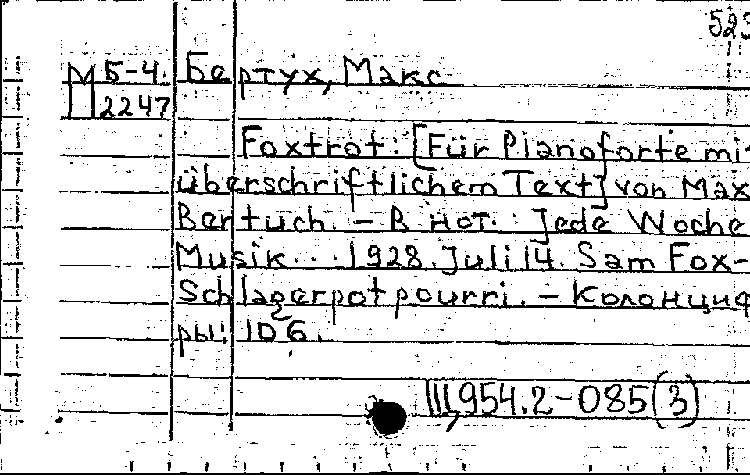 523
М Б-4. Бертух, Макс
2247
Foxtrot: [Für Pianoforte mit
überschriftlichem Text] von Max
Bertuch. – В нот.: Jede Woche
Musik... 1928. Juli 14. Sam Fox-
Schlagerpotpourri. – Колонциф
ры: 106.
III,954.2-085(3)